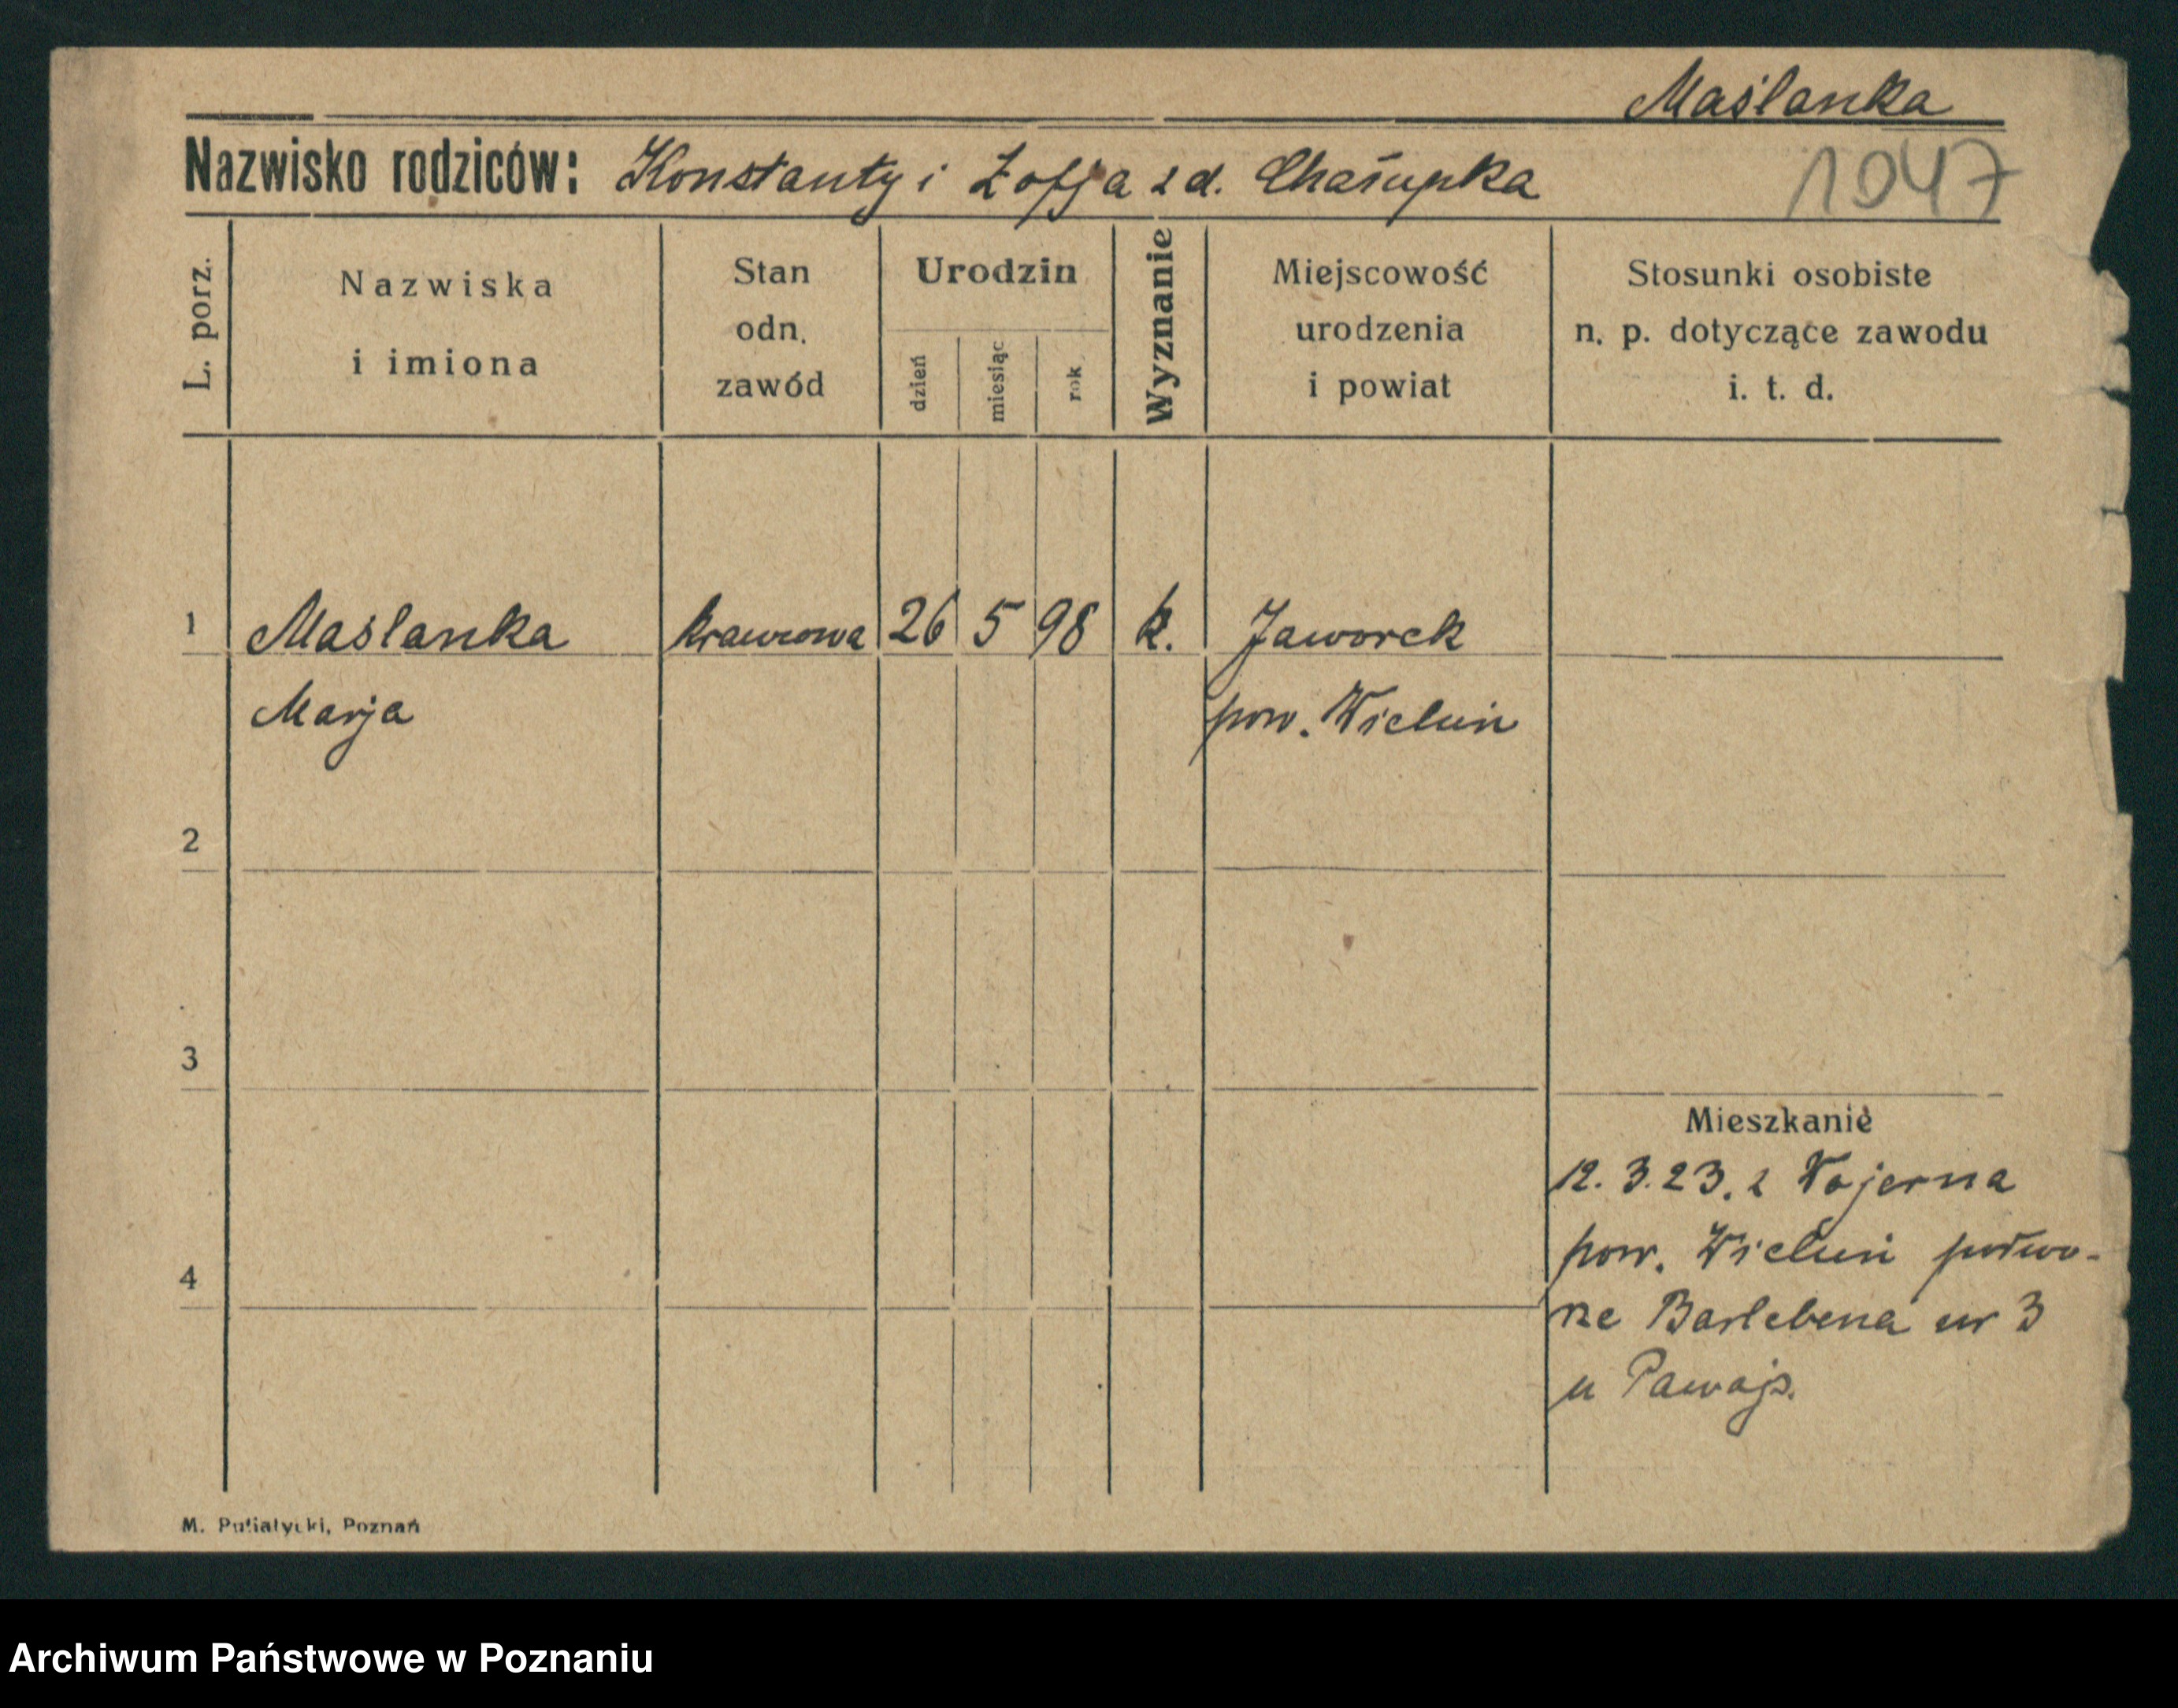 Maślanka
Nazwisko rodziców: Konstanty i Zofja z d. Chałupka
1047
L. porz.
Nazwiska
i imiona
Stan
odn.
zawód
Urodzin
dzień
miesiąc
rok
Wyznanie
Miejscowość
urodzenia
i powiat
Stosunki osobiste
n. p. dotyczące zawodu
i. t. d.
1 Maślanka krawcowa 26 5 98 k. Jaworek
Marja pow. Wieluń
2
3
Mieszkanie
12.3.23. z
pow. Wieluń
4
Barlebena nr 3
u
M. Putiatycki, Poznań
Archiwum Państwowe w Poznaniu